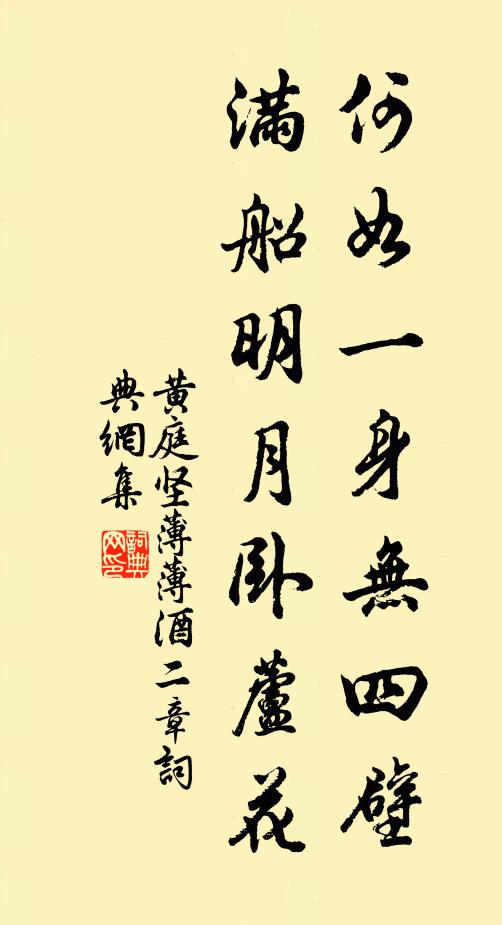 何如一身無四壁
滿船明月臥蘆花
黄庭坚薄薄酒二章詞
典網集
詞典
网印